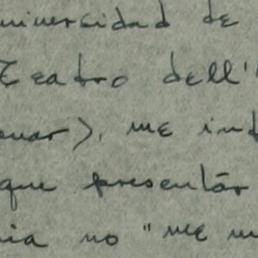 universidad de
Teatro dell'
onar), me int
que presentár
ia no "me m